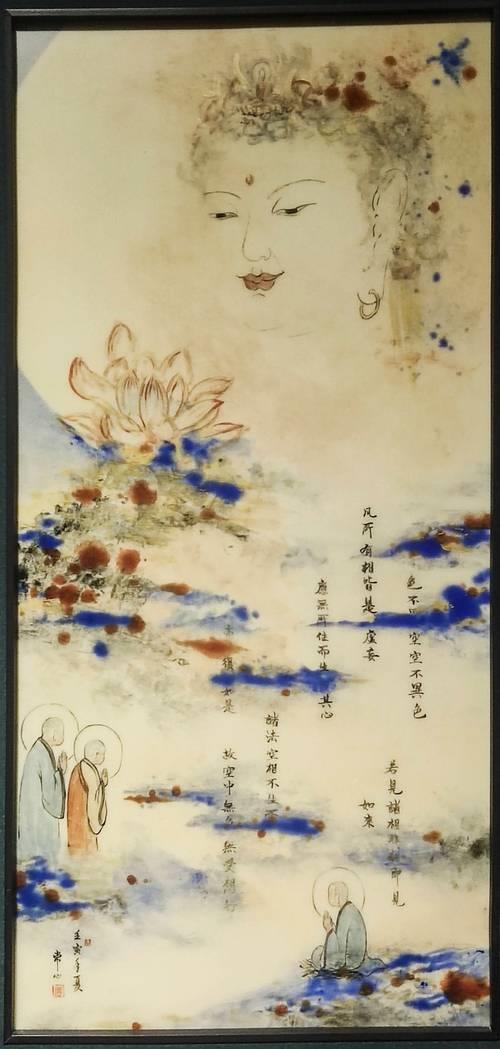 色不 空空不異色
凡所有相皆是虛妄
應無所住而生其心
亦復如是
諸法空相不生
故空中無色無受想行
若見諸相非相即見
如來
壬寅年夏
常心